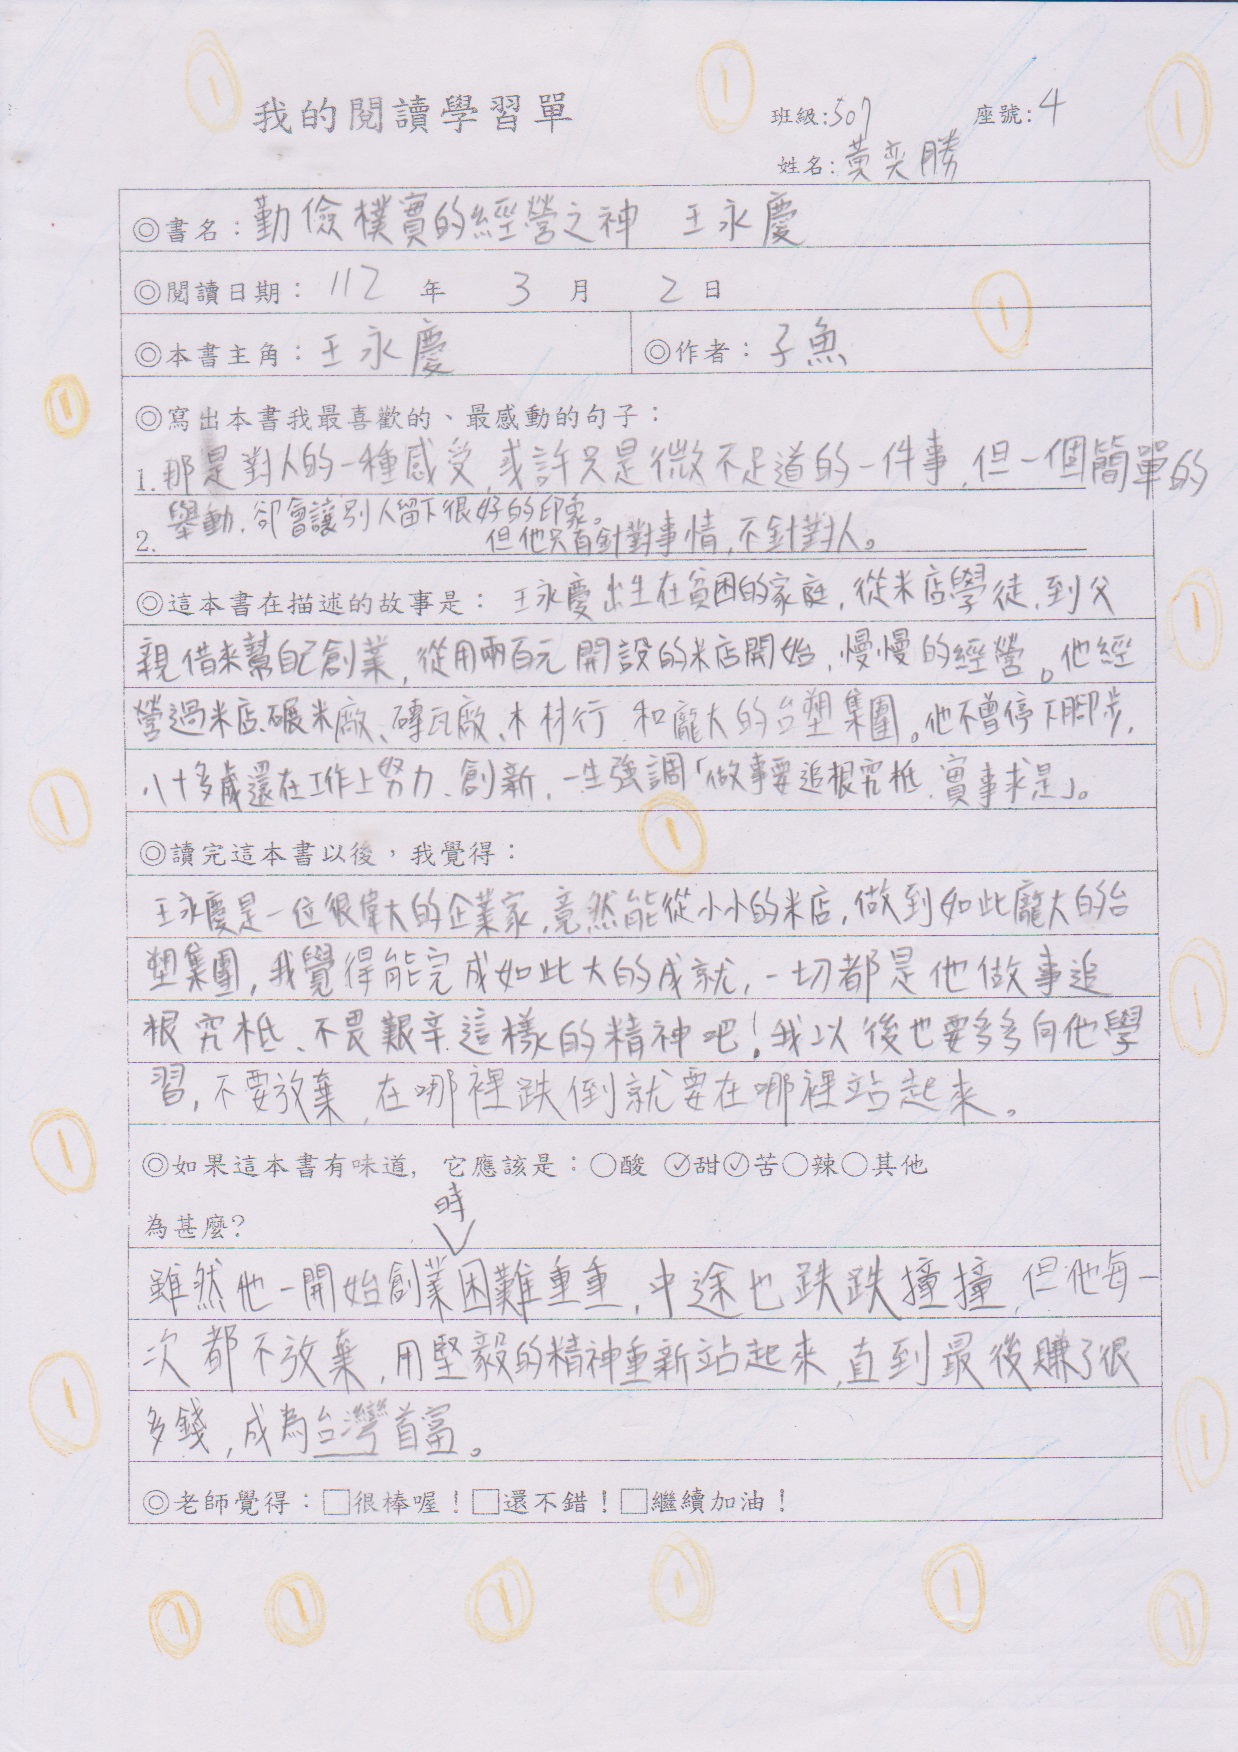 我的閱讀學習單
班級:507 座號:4
姓名:黃奕勝
◎書名:勤儉樸實的經營之神 王永慶
◎閱讀日期:112年3月2日
◎本書主角:王永慶 ◎作者:子魚
◎寫出本書我最喜歡的、最感動的句子:
1.那是對人的一種感受,或許只是微不足道的一件事,但一個簡單的
舉動,卻會讓別人留下很好的印象。
2.但他只有針對事情,不針對人。
◎這本書在描述的故事是:王永慶出生在貧困的家庭,從米店學徒,到父
親借來幫自己創業,從用兩百元開設的米店開始,慢慢的經營。他經
營過米店、碾米廠、磚瓦廠、木材行 和龐大的台塑集團。他不曾停下腳步,
八十多歲還在工作上努力、創新,一生強調「做事要追根究柢、實事求是」。
◎讀完這本書以後,我覺得:
王永慶是一位很偉大的企業家,竟然能從小小的米店,做到如此龐大的台
塑集團,我覺得能完成如此大的成就,一切都是他做事追
根究柢、不畏艱辛這樣的精神吧!我以後也要多多向他學
習,不要放棄,在哪裡跌倒就要在哪裡站起來。
◎如果這本書有味道,它應該是:○酸 ✓甜✓苦○辣○其他
為甚麼?
時
雖然他一開始創業困難重重,中途也跌跌撞撞,但他每一
次都不放棄,用堅毅的精神重新站起來,直到最後賺了很
多錢,成為台灣首富。
◎老師覺得:□很棒喔!□還不錯!□繼續加油!